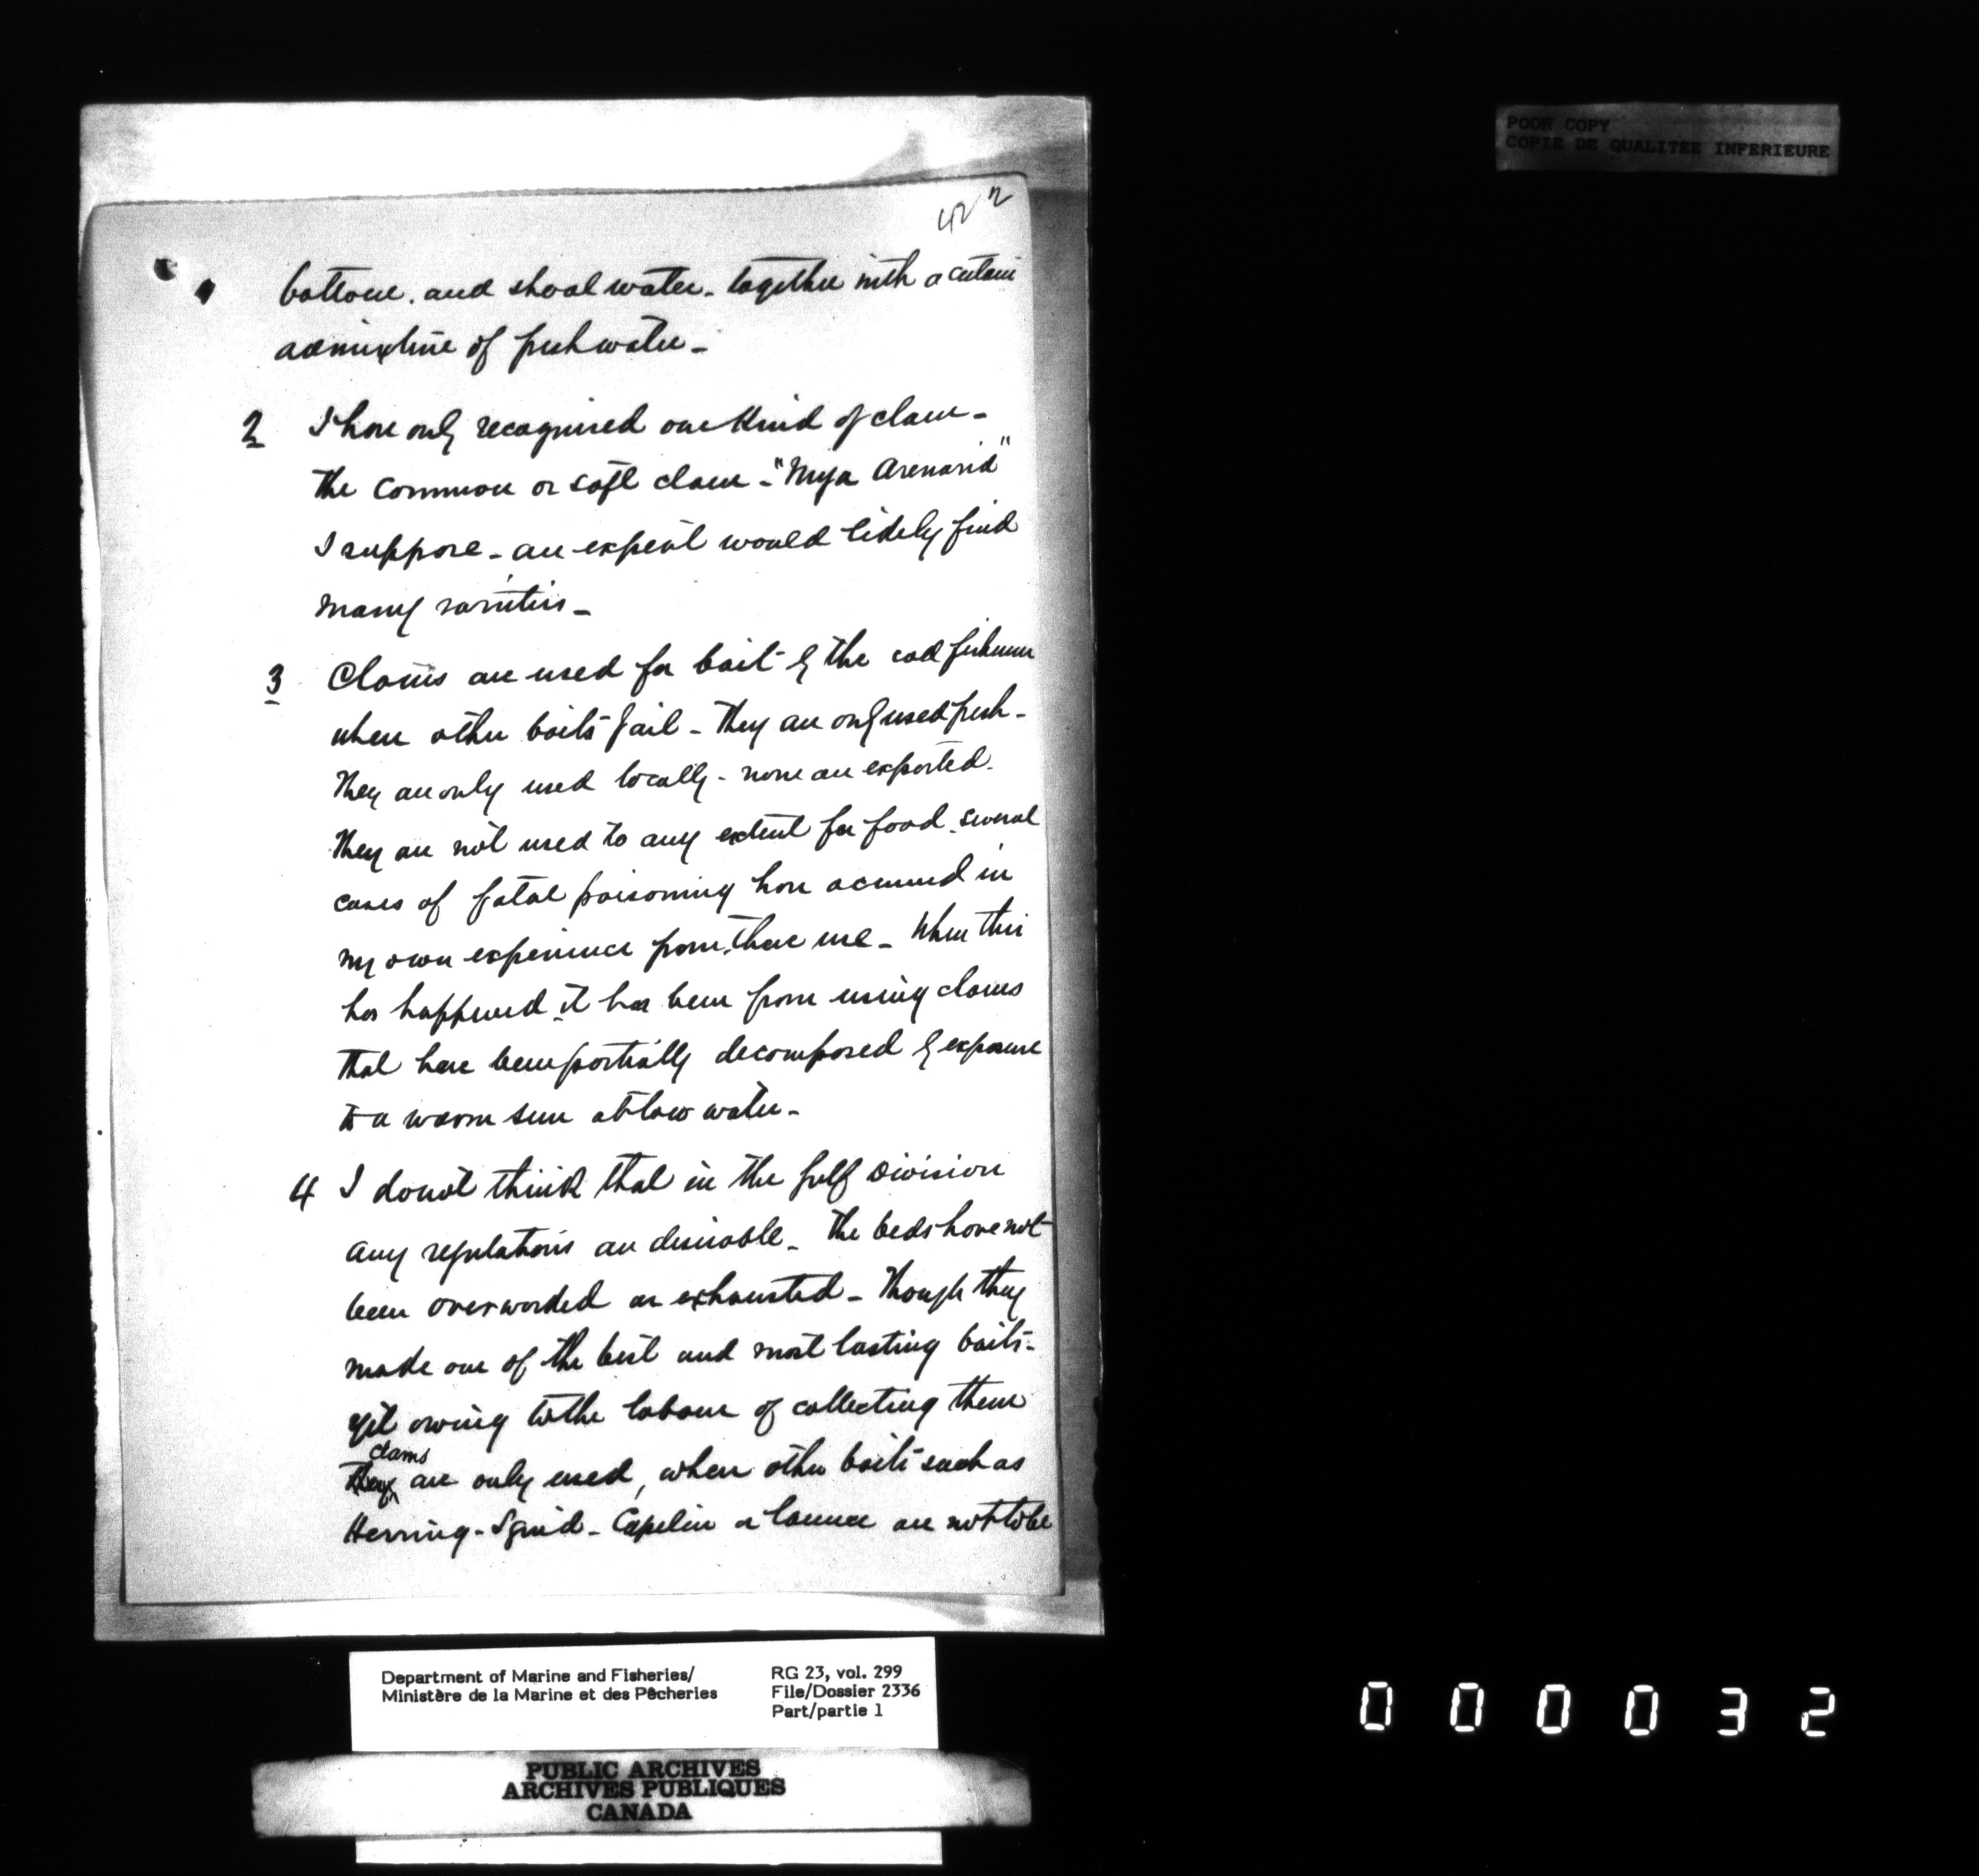 POOR COPY
COPIE DE QUALITEE INFERIEURE
42
bottom. and shoal water - together with a certain
admixture of fresh water -
2 I have only recognised one kind of clam -
the common or soft clam - "Mya Arenaria"
I suppose - an expert would likely find
many varieties -
3 Clams are used for bait by the cod fishermen
when other baits fail - They are only used fresh -
They are only used locally - none are exported.
They are not used to any extent for food. several
cases of fatal poisoning have occurred in
my own experience from there use - When this
has happened it has been from using clams
that have been partially decomposed by exposure
to a warm sun at low water -
4 I do not think that in the Gulf Division
any regulations are desirable - The beds have not
been overworked or exhausted - Though they
made one of the best and most lasting baits -
yet owing to the labour of collecting them
clams
They are only used, when other baits such as
Herring - Squid - Capelin or launce are not to be
Department of Marine and Fisheries/
Ministère de la Marine et des Pêcheries
RG 23, vol. 299
File/Dossier 2336
Part/partie 1
PUBLIC ARCHIVES
ARCHIVES PUBLIQUES
CANADA
000032